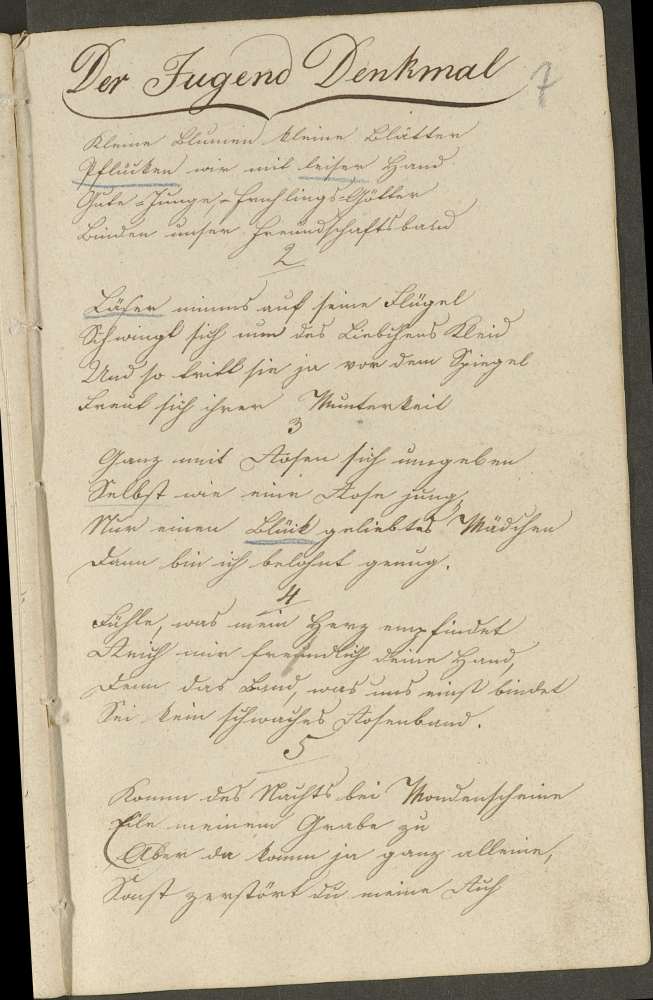 Der Jugend Denkmal 7
Kleine Blumen kleine Blätter
Pflücken wir mit leiser Hand
Gute-Junge-Frühlings-Götter
Binden unser Freundschaftsband
2
Läfer nimms auf seine Flügel
Schwingt sich um des Liebchens Kleid
Und so tritt sie ja vor dem Spiegel
Freut sich ihrer Munterkeit
3
Ganz mit Rosen sich umgeben
Selbst wie eine Rose jung,
Nur einen Blück geliebtes Mädchen
Dann bin ich belohnt genug.
4
Fühle, was mein Herz empfindet
Reich mir freundlich deine Hand,
Denn das Band, was uns einst bindet
Sei kein schwaches Rosenband.
5
Komm des Nachts bei Mondenscheine
Eile meinem Grabe zu
Aber da komm ja ganz alleine,
Sonst zerstört du meine Ruh